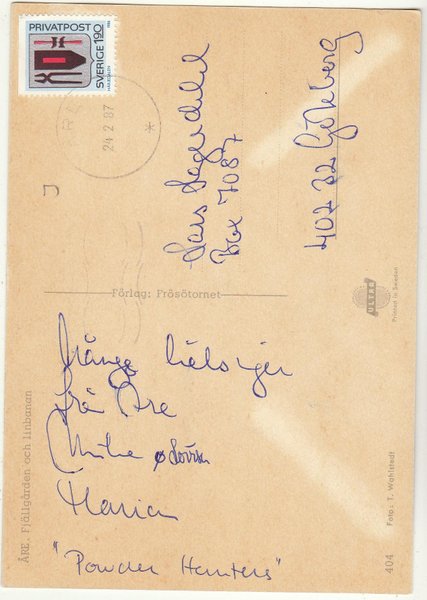 PRIVATPOST
SVERIGE 190
24 2 87
Box 7087
402 32 Göteborg
Förlag: Frösötornet
ULTRA
Printed in Sweden
Många hälsningar
från Åre
Maria
"Powder Hunters"
ÅRE. Fjällgården och linbanan
Foto: T. Wahlstedt
404